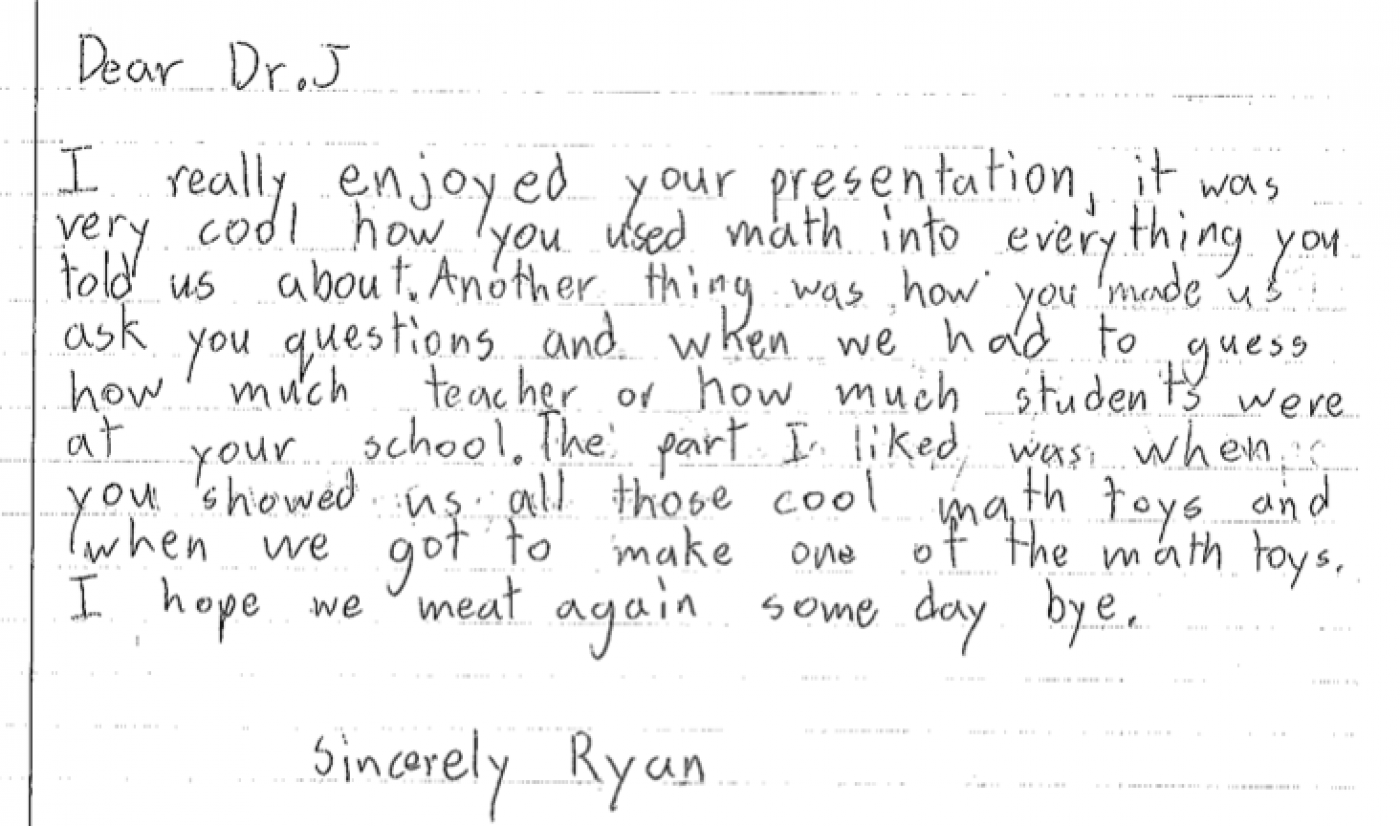 Dear Dr.J
I really enjoyed your presentation, it was
very cool how you used math into everything you
told us about. Another thing was how you made us
ask you questions and when we had to guess
how much teacher or how much students were
at your school. The part I liked was when
you showed us all those cool math toys and
when we got to make one of the math toys.
I hope we meat again some day bye.
Sincerely Ryan